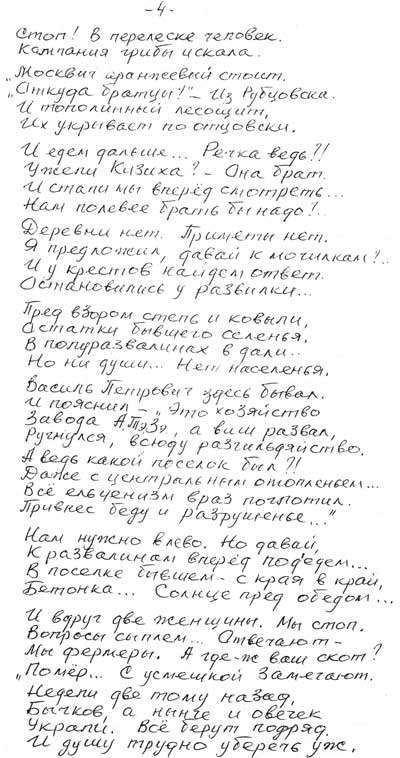 -4-
Стоп! В перелеске человек.
Компания грибы искала.
„Москвич оранжевый стоит.
„Откуда братцы!"- Из Рубцовска.
И тополинный лесощит,
Их укрывает по отцовски.
И едем дальше... Речка ведь?!
Ужели Кизиха? - Она брат.
И стали мы вперёд смотреть...
Нам полевее брать бы надо?..
Деревни нет. Приметы нет.
Я предложил, давай к могилкам?..
И у крестов найдем ответ.
Остановились у развилки...
Пред взором степь и ковыли,
Остатки бывшего селенья.
В полуразвалинах в дали..
Но ни души... Нет населенья.
Василь Петрович здесь бывал.
И пояснил - „Это хозяйство
Завода АТэЗэ, а виш развал,
Ругнулся, всюду разгильдяйство.
А ведь какой поселок был?!
Даже с центральным отопленьем...
Всё ельценизм враз поглотил.
Привнес беду и разрушенье..."
Нам нужно влево. Но давай,
К развалинам вперёд подъедем...
В поселке бывшем - с края в край,
Бетонка... Солнце пред обедом...
И вдруг две женщины. Мы стоп.
Вопросы сыплем... Отвечают -
Мы фермеры. А где-ж ваш скот?
„Помёр... С усмешкой замечают.
Недели две тому назад,
Бычков, а нынче и овечек
Украли. Всё берут подряд.
И душу трудно уберечь уж.